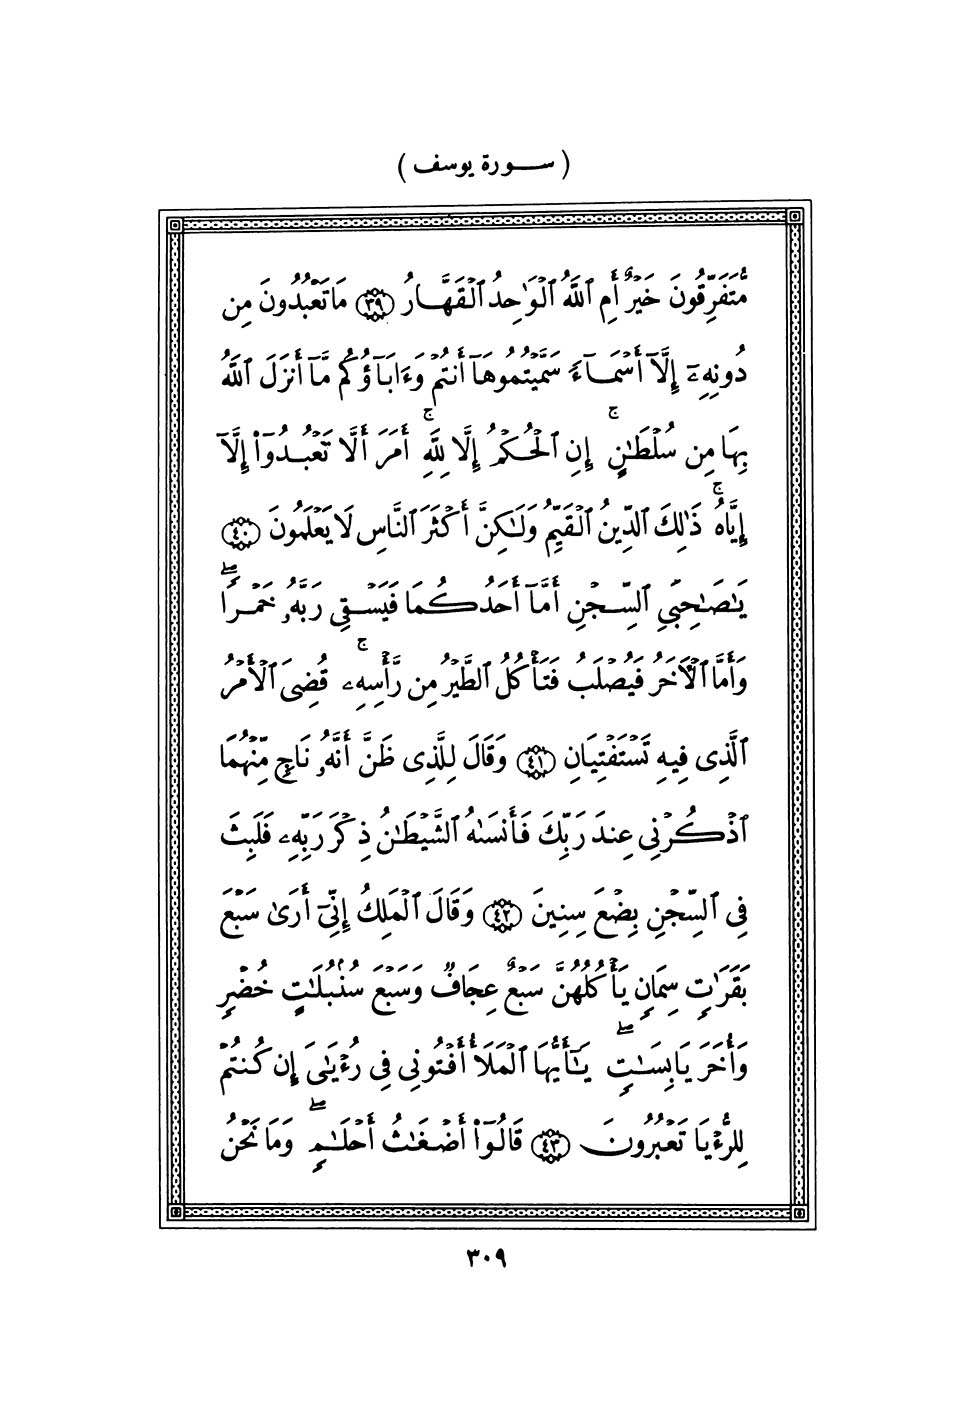 ( ســورة يوسف )
مُّتَفَرِّقُونَ خَيْرٌ أَمِ ٱللَّهُ ٱلْوَٰحِدُ ٱلْقَهَّارُ ﴿٣٩﴾ مَا تَعْبُدُونَ مِن
دُونِهِۦٓ إِلَّآ أَسْمَآءً سَمَّيْتُمُوهَآ أَنتُمْ وَءَابَآؤُكُم مَّآ أَنزَلَ ٱللَّهُ
بِهَا مِن سُلْطَٰنٍ ۚ إِنِ ٱلْحُكْمُ إِلَّا لِلَّهِ ۚ أَمَرَ أَلَّا تَعْبُدُوٓا۟ إِلَّآ
إِيَّاهُ ۚ ذَٰلِكَ ٱلدِّينُ ٱلْقَيِّمُ وَلَٰكِنَّ أَكْثَرَ ٱلنَّاسِ لَا يَعْلَمُونَ ﴿٤٠﴾
يَٰصَٰحِبَىِ ٱلسِّجْنِ أَمَّآ أَحَدُكُمَا فَيَسْقِى رَبَّهُۥ خَمْرًا ۖ
وَأَمَّا ٱلْءَاخَرُ فَيُصْلَبُ فَتَأْكُلُ ٱلطَّيْرُ مِن رَّأْسِهِۦ ۚ قُضِىَ ٱلْأَمْرُ
ٱلَّذِى فِيهِ تَسْتَفْتِيَانِ ﴿٤١﴾ وَقَالَ لِلَّذِى ظَنَّ أَنَّهُۥ نَاجٍ مِّنْهُمَا
ٱذْكُرْنِى عِندَ رَبِّكَ فَأَنسَىٰهُ ٱلشَّيْطَٰنُ ذِكْرَ رَبِّهِۦ فَلَبِثَ
فِى ٱلسِّجْنِ بِضْعَ سِنِينَ ﴿٤٢﴾ وَقَالَ ٱلْمَلِكُ إِنِّىٓ أَرَىٰ سَبْعَ
بَقَرَٰتٍ سِمَانٍ يَأْكُلُهُنَّ سَبْعٌ عِجَافٌ وَسَبْعَ سُنۢبُلَٰتٍ خُضْرٍ
وَأُخَرَ يَابِسَٰتٍ ۖ يَٰٓأَيُّهَا ٱلْمَلَأُ أَفْتُونِى فِى رُءْيَٰىَ إِن كُنتُمْ
لِلرُّءْيَا تَعْبُرُونَ ﴿٤٣﴾ قَالُوٓا۟ أَضْغَٰثُ أَحْلَٰمٍ ۖ وَمَا نَحْنُ
٣٠٩